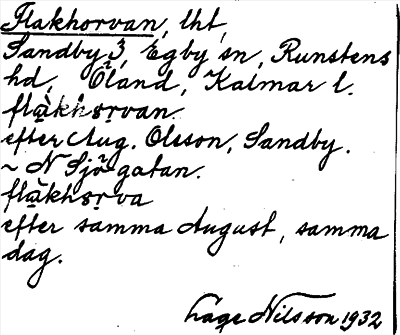 Flakhorvan, lht,
Sandby 3, Egby sn, Runstens
hd, Öland, Kalmar l.
flàkhsr̥van.
efter Aug. Olsson, Sandby.
~ N Sjögatan.
flàkhsr̥va
efter samma August, samma
dag.
Låge Nilsson 1932